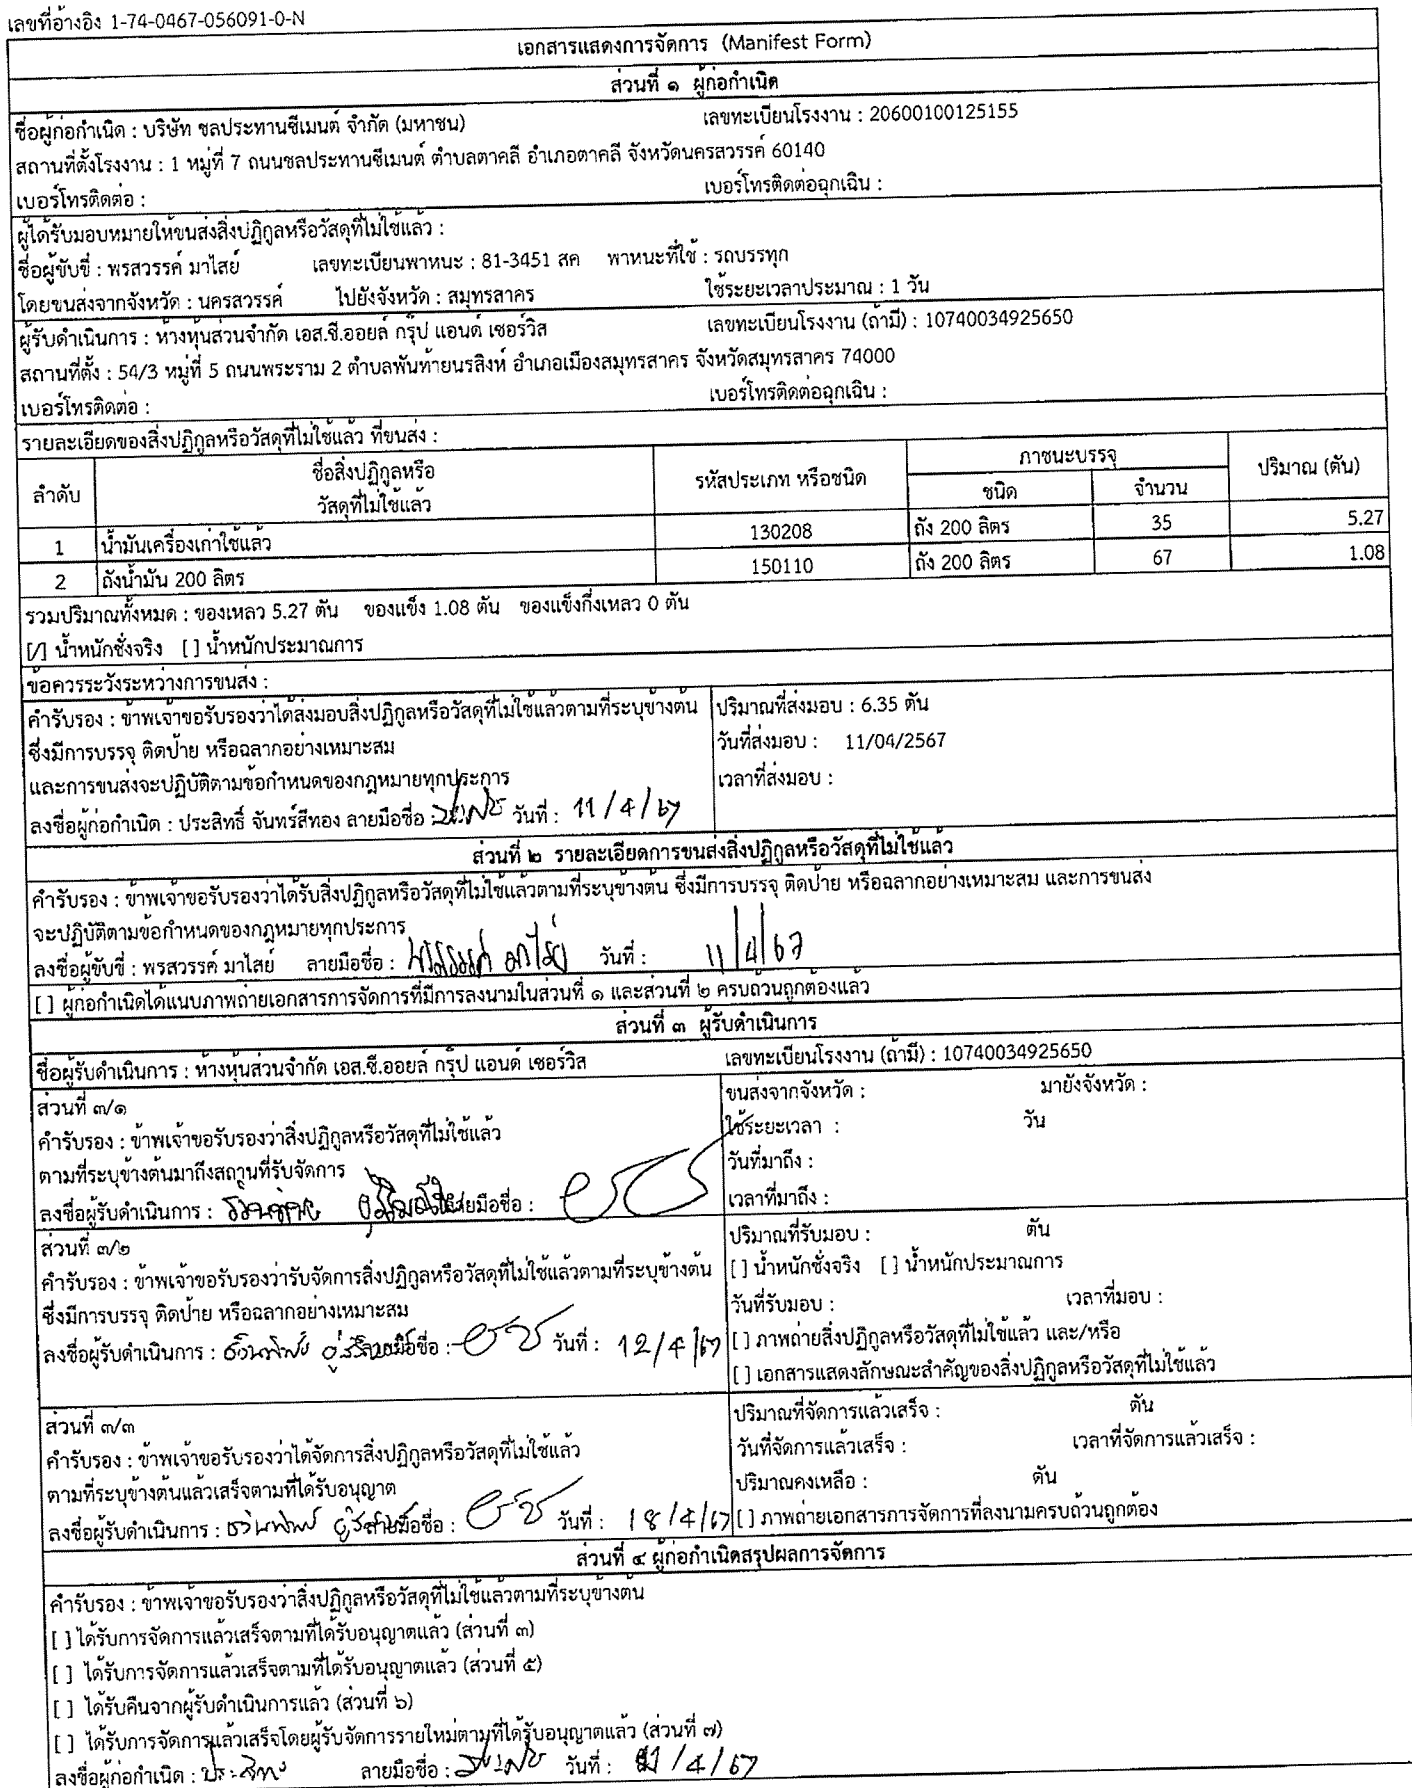 เลขที่อ้างอิง 1-74-0467-056091-0-N
เอกสารแสดงการจัดการ (Manifest Form)
ส่วนที่ ๑ ผู้ก่อกำเนิด
ชื่อผู้ก่อกำเนิด : บริษัท ชลประทานซีเมนต์ จำกัด (มหาชน) เลขทะเบียนโรงงาน : 20600100125155
สถานที่ตั้งโรงงาน : 1 หมู่ที่ 7 ถนนชลประทานซีเมนต์ ตำบลตาคลี อำเภอตาคลี จังหวัดนครสวรรค์ 60140
เบอร์โทรติดต่อ : เบอร์โทรติดต่อฉุกเฉิน :
ผู้ได้รับมอบหมายให้ขนส่งสิ่งปฏิกูลหรือวัสดุที่ไม่ใช้แล้ว :
ชื่อผู้ขับขี่ : พรสวรรค์ มาไสย์ เลขทะเบียนพาหนะ : 81-3451 สค พาหนะที่ใช้ : รถบรรทุก
โดยขนส่งจากจังหวัด : นครสวรรค์ ไปยังจังหวัด : สมุทรสาคร ใช้ระยะเวลาประมาณ : 1 วัน
ผู้รับดำเนินการ : ห้างหุ้นส่วนจำกัด เอส.ซี.ออยล์ กรุ๊ป แอนด์ เซอร์วิส เลขทะเบียนโรงงาน (ถ้ามี) : 10740034925650
สถานที่ตั้ง : 54/3 หมู่ที่ 5 ถนนพระราม 2 ตำบลพันท้ายนรสิงห์ อำเภอเมืองสมุทรสาคร จังหวัดสมุทรสาคร 74000
เบอร์โทรติดต่อ : เบอร์โทรติดต่อฉุกเฉิน :
รายละเอียดของสิ่งปฏิกูลหรือวัสดุที่ไม่ใช้แล้ว ที่ขนส่ง :
ลำดับ ชื่อสิ่งปฏิกูลหรือ วัสดุที่ไม่ใช้แล้ว รหัสประเภท หรือชนิด ภาชนะบรรจุ ปริมาณ (ตัน)
ชนิด จำนวน
1 น้ำมันเครื่องเก่าใช้แล้ว 130208 ถัง 200 ลิตร 35 5.27
2 ถังน้ำมัน 200 ลิตร 150110 ถัง 200 ลิตร 67 1.08
รวมปริมาณทั้งหมด : ของเหลว 5.27 ตัน ของแข็ง 1.08 ตัน ของแข็งกึ่งเหลว 0 ตัน
[/] น้ำหนักชั่งจริง [ ] น้ำหนักประมาณการ
ข้อควรระวังระหว่างการขนส่ง :
คำรับรอง : ข้าพเจ้าขอรับรองว่าได้ส่งมอบสิ่งปฏิกูลหรือวัสดุที่ไม่ใช้แล้วตามที่ระบุข้างต้น ปริมาณที่ส่งมอบ : 6.35 ตัน
ซึ่งมีการบรรจุ ติดป้าย หรือฉลากอย่างเหมาะสม วันที่ส่งมอบ : 11/04/2567
และการขนส่งจะปฏิบัติตามข้อกำหนดของกฎหมายทุกประการ เวลาที่ส่งมอบ :
ลงชื่อผู้ก่อกำเนิด : ประสิทธิ์ จันทร์สีทอง ลายมือชื่อ : วันที่ : 11/4/67
ส่วนที่ ๒ รายละเอียดการขนส่งสิ่งปฏิกูลหรือวัสดุที่ไม่ใช้แล้ว
คำรับรอง : ข้าพเจ้าขอรับรองว่าได้รับสิ่งปฏิกูลหรือวัสดุที่ไม่ใช้แล้วตามที่ระบุข้างต้น ซึ่งมีการบรรจุ ติดป้าย หรือฉลากอย่างเหมาะสม และการขนส่ง
จะปฏิบัติตามข้อกำหนดของกฎหมายทุกประการ
ลงชื่อผู้ขับขี่ : พรสวรรค์ มาไสย์ ลายมือชื่อ : พรสวรรค์ มาไสย์ วันที่ : 11/4/67
[ ] ผู้ก่อกำเนิดได้แนบภาพถ่ายเอกสารการจัดการที่มีการลงนามในส่วนที่ ๑ และส่วนที่ ๒ ครบถ้วนถูกต้องแล้ว
ส่วนที่ ๓ ผู้รับดำเนินการ
ชื่อผู้รับดำเนินการ : ห้างหุ้นส่วนจำกัด เอส.ซี.ออยล์ กรุ๊ป แอนด์ เซอร์วิส เลขทะเบียนโรงงาน (ถ้ามี) : 10740034925650
ส่วนที่ ๓/๑ ขนส่งจากจังหวัด : มายังจังหวัด :
คำรับรอง : ข้าพเจ้าขอรับรองว่าสิ่งปฏิกูลหรือวัสดุที่ไม่ใช้แล้ว ใช้ระยะเวลา : วัน
ตามที่ระบุข้างต้นมาถึงสถานที่รับจัดการ วันที่มาถึง :
ลงชื่อผู้รับดำเนินการ : ลายมือชื่อ : เวลาที่มาถึง :
ส่วนที่ ๓/๒ ปริมาณที่รับมอบ : ตัน
คำรับรอง : ข้าพเจ้าขอรับรองว่ารับจัดการสิ่งปฏิกูลหรือวัสดุที่ไม่ใช้แล้วตามที่ระบุข้างต้น [ ] น้ำหนักชั่งจริง [ ] น้ำหนักประมาณการ
ซึ่งมีการบรรจุ ติดป้าย หรือฉลากอย่างเหมาะสม วันที่รับมอบ : เวลาที่มอบ :
ลงชื่อผู้รับดำเนินการ : ลายมือชื่อ : วันที่ : 12/4/67 [ ] ภาพถ่ายสิ่งปฏิกูลหรือวัสดุที่ไม่ใช้แล้ว และ/หรือ
[ ] เอกสารแสดงลักษณะสำคัญของสิ่งปฏิกูลหรือวัสดุที่ไม่ใช้แล้ว
ส่วนที่ ๓/๓ ปริมาณที่จัดการแล้วเสร็จ : ตัน
คำรับรอง : ข้าพเจ้าขอรับรองว่าได้จัดการสิ่งปฏิกูลหรือวัสดุที่ไม่ใช้แล้ว วันที่จัดการแล้วเสร็จ : เวลาที่จัดการแล้วเสร็จ :
ตามที่ระบุข้างต้นแล้วเสร็จตามที่ได้รับอนุญาต ปริมาณคงเหลือ : ตัน
ลงชื่อผู้รับดำเนินการ : ลายมือชื่อ : วันที่ : 18/4/67 [ ] ภาพถ่ายเอกสารการจัดการที่ลงนามครบถ้วนถูกต้อง
ส่วนที่ ๔ ผู้ก่อกำเนิดสรุปผลการจัดการ
คำรับรอง : ข้าพเจ้าขอรับรองว่าสิ่งปฏิกูลหรือวัสดุที่ไม่ใช้แล้วตามที่ระบุข้างต้น
[ ] ได้รับการจัดการแล้วเสร็จตามที่ได้รับอนุญาตแล้ว (ส่วนที่ ๓)
[ ] ได้รับการจัดการแล้วเสร็จตามที่ได้รับอนุญาตแล้ว (ส่วนที่ ๕)
[ ] ได้รับคืนจากผู้รับดำเนินการแล้ว (ส่วนที่ ๖)
[ ] ได้รับการจัดการแล้วเสร็จโดยผู้รับจัดการรายใหม่ตามที่ได้รับอนุญาตแล้ว (ส่วนที่ ๗)
ลงชื่อผู้ก่อกำเนิด : ลายมือชื่อ : วันที่ : /4/67